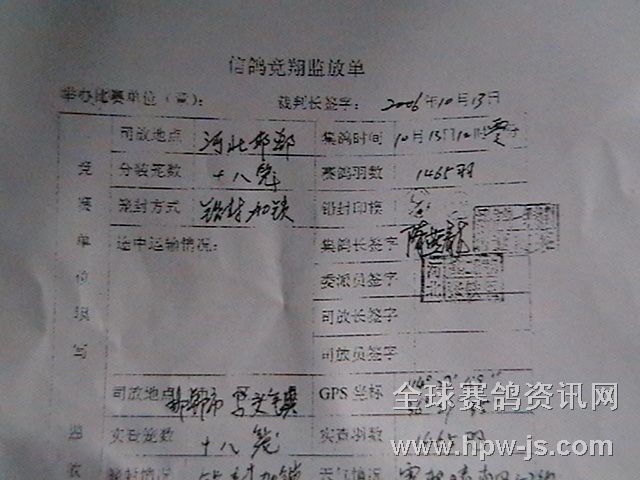 信鸽竞翔监放单
举办比赛单位(章): 裁判长签字: 2006年10月13日
司放地点 河北邯郸 集鸽时间 10月13日12时
分装笼数 十八笼 赛鸽羽数 1465羽
笼封方式 铅封加锁 铅封印模
途中运输情况: 集鸽长签字
委派员签字
司放长签字
司放员签字
竞赛单位填写
司放地点 邯郸市 马头镇 GPS 坐标
实到笼数 十八笼 实到羽数 1465羽
笼封情况 铅封加锁 天气情况
全球赛鸽资讯网
www.hpw-js.com